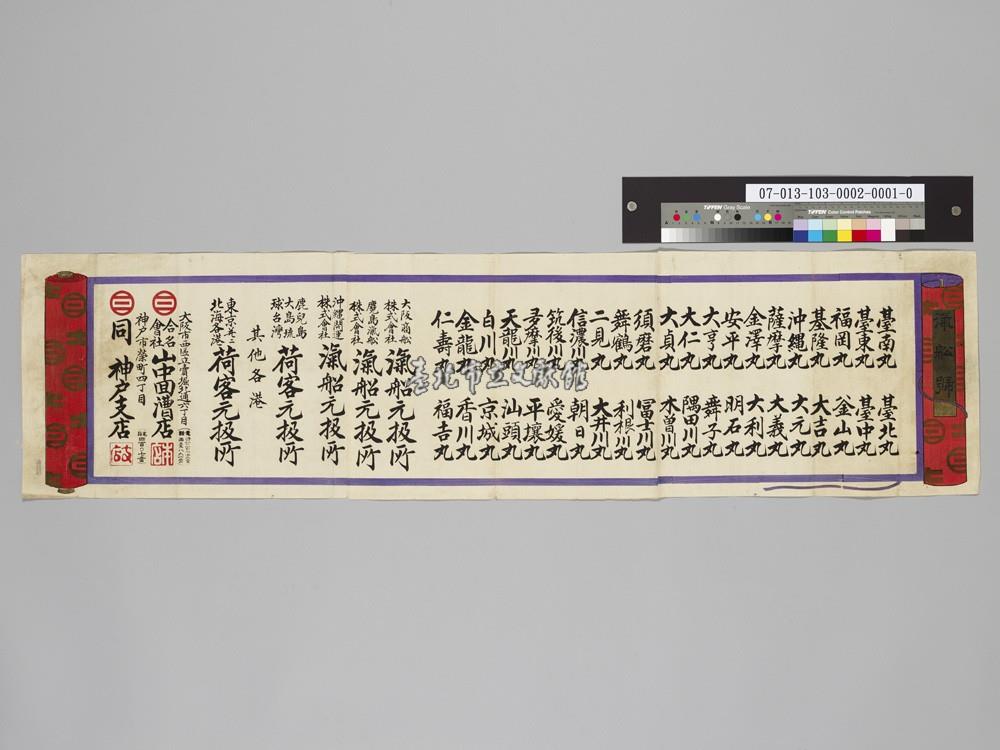 07-013-103-0002-0001-0
TIFFEN Gray Scale
TIFFEN Color Control Patches
滊舩號
臺南丸 臺北丸
臺東丸 臺中丸
福岡丸 釜山丸
基隆丸 大吉丸
沖縄丸 大元丸
薩摩丸 大義丸
金澤丸 大利丸
安平丸 明石丸
大亨丸 舞子丸
大仁丸 隅田川丸
大貞丸 木曽川丸
須磨丸 冨士川丸
舞鶴丸 利根川丸
二見丸 大井川丸
信濃川丸 朝日丸
筑後川丸 愛媛丸
吾摩川丸 平壤丸
天龍川丸 汕頭丸
白川丸 京城丸
金龍丸 香川丸
仁壽丸 福吉丸
大阪商舩株式會社 滊船元扱所
鹿島滊舩株式會社 滊船元扱所
沖縄開運株式會社 滊船元扱所
鹿兒島大島琉球台灣 荷客元扱所
其他各港
東京并ニ北海各港 荷客元扱所
大阪市西區立賣堀北通六丁目
合名會社 山中回漕店
神戸市榮町四丁目
同 神戸支店
臺北市立文獻館